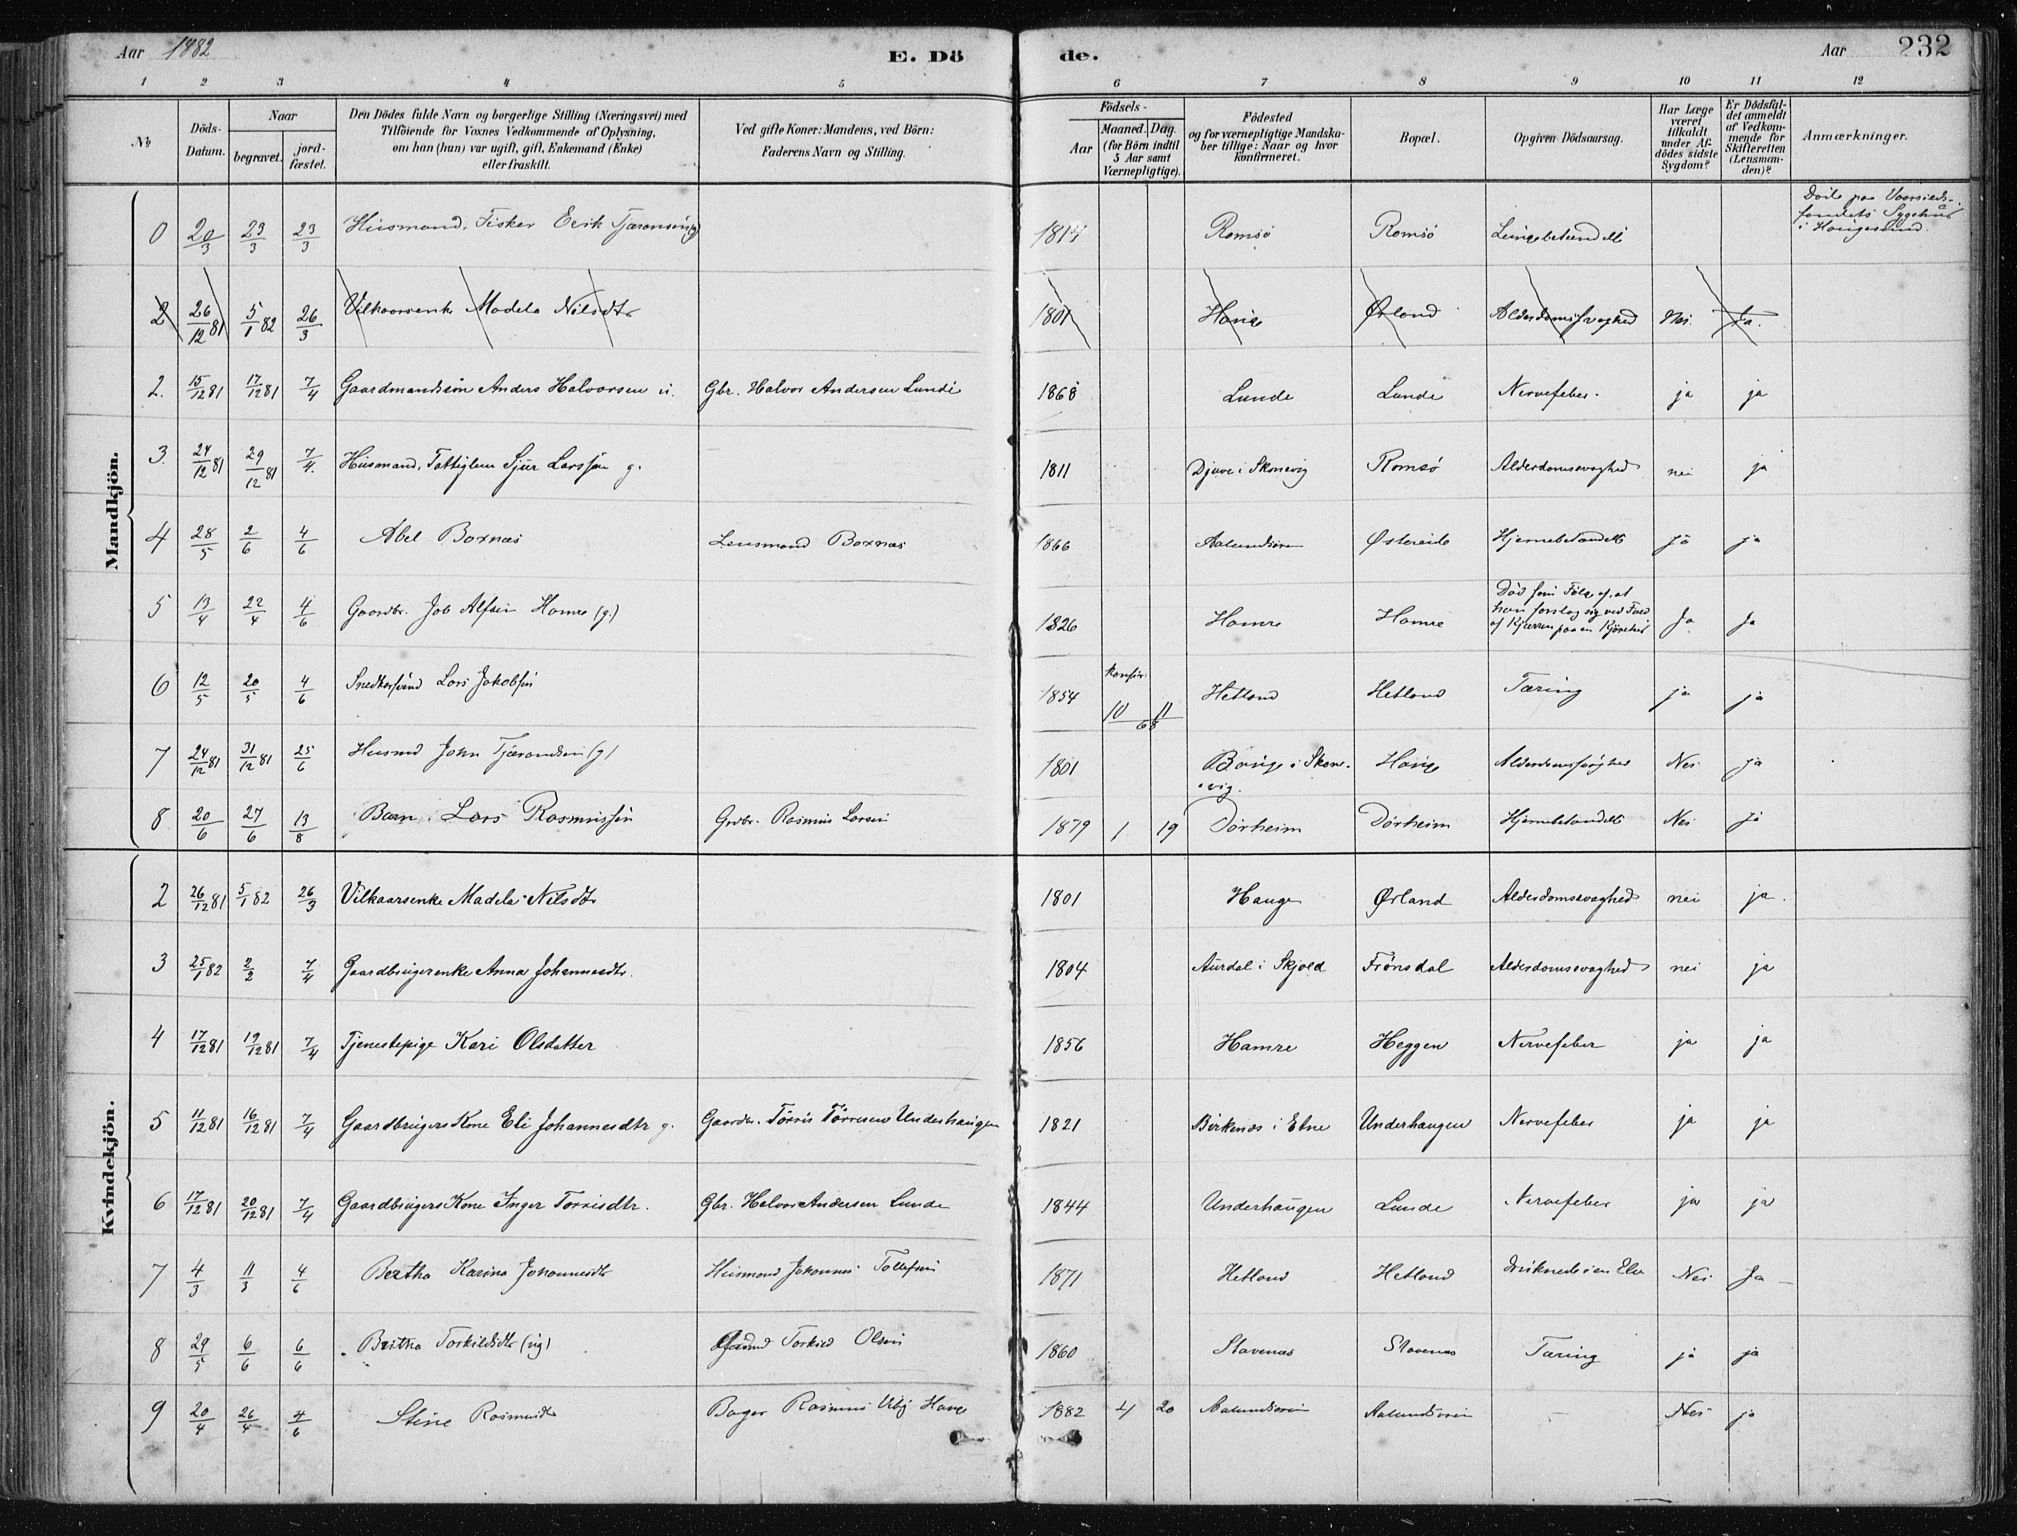 Aar 1882
E. Dö
de.
Aar
232
1 2 3 4 5 6 7 8 9 10 11 12
No
Döds-
Datum.
Naar
begravet.
jord-
fæstet.
Den Dödes fulde Navn og borgerlige Stilling (Næringsvei) med
Tilföiende for Voxnes Vedkommende af Oplysning,
om han (hun) var ugift, gift, Enkemand (Enke)
eller fraskilt.
Ved gifte Koner: Mandens, ved Börn:
Faderens Navn og Stilling.
Födsels-
Aar
Maaned. Dag.
(for Börn indtil
5 Aar samt
Værnepligtige).
Födested
og for værnepligtige Mandska-
ber tillige: Naar og hvor
konfirmeret.
Bopæl.
Opgiven Dödsaarsag.
Har Læge
været
tilkaldt
under Af-
dödes sidste
Sygdom?
Er Dödsfal-
det anmeldt
af Vedkom-
mende for
Skifteretten
(Lensman-
den)?
Anmærkninger.
Mandkjön.
0 20/3 23/3 23/3 Husmand, Fisker Erik 1814 Romsø Romsø Lungebetændelse Døde paa
Sygehus
i Haugesund.
2 26/12 81 5/1 82 26/3 Vilkaarsenke Madela Nilsdtr 1801 Hauge Ørland Alderdomssvaghed Nei Ja.
2. 15/12 81 17/12 81 7/4 Gaardmandssøn Anders Halvorsen u. Gbr. Halvor Andersen Lunde 1868 Lunde Lunde Nervefeber. ja ja
3. 24/12 81 29/12 81 7/4. Husmand, Fattiglem Sjur Larssøn g. 1811 Djuve i Skonevig Romsø Alderdomssvaghed nei ja
4 28/5 2/6 4/6 Abel Bornæs Lensmand Bornæs 1866 Aalundsøren Østereide Hjernebetændelse Ja ja
5 13/4 22/4 4/6 Gaardbr. Job Alfsen Hamre (g.) 1826 Hamre Hamre Død som Følge af, at
han forslog sig ved Fald
af Kjærren paa en Kjøretur Ja Ja
6 12/5 20/5 4/6 Snedkersvend Lars Jakobsen 1854 konfir. 10 11/68 Hetland Hetland Tæring ja ja
7 24/12 81 31/12 81 25/6 Husmd John Tjærandsen (g) 1801 Bauge i Skone-
vig. Hauge Alderdomssvaghed Nei ja
8 20/6 27/6 13/8 Barn Lars Rasmussen Grdbr. Rasmus Larsen 1879 1 19 Dørheim Dørheim Hjernebetændelse Nei ja
Kvindekjön.
2 26/12 81 5/1 82 26/3 Vilkaarsenke Madela Nilsdtr 1801 Hauge Ørland Alderdomssvaghed nei ja.
3 25/1 82 2/2 7/4 Gaardbrugerenke Anna Johannesdtr. 1804 Aurdal i Skjold Frønsdal Alderdomssvaghed nei ja
4 17/12 81 19/12 81 7/4 Tjenestepige Kari Olsdatter 1856 Hamre Heggen Nervefeber ja ja
5 11/12 81 16/12 81 7/4 Gaardbrugers Kone Eli Johannesdtr g. Gaardbr. Tørris Tørresen Underhaugen 1821 Birkenæs i Etne Underhaugen Nervefeber ja ja
6 17/12 81 20/12 81 7/4 Gaardbrugers Kone Inger Torrisdtr. Gbr. Halvor Andersen Lunde 1844 Underhaugen Lunde Nervefeber ja ja
7 4/3 11/3 4/6 Bertha Karina Johannesdtr Husmand Johannes Tollefsen 1871 Hetland Hetland druknede i en Elv Nei Ja
8 29/5 6/6 6/6 Britha Torkildsdtr (ug) Torkild Olsen 1860 Stavenæs Stavenæs Tæring ja ja
9 20/4 26/4 4/6 Stine Rasmusdtr Bager Rasmus Hauge 1882 4 20 Aalundsøren Aalundsøren — Nei ja